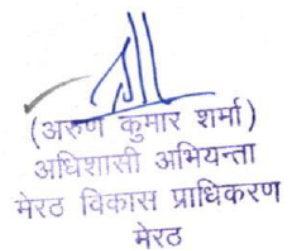 (अरुण कुमार शर्मा)
अधिशासी अभियन्ता
मेरठ विकास प्राधिकरण
मेरठ